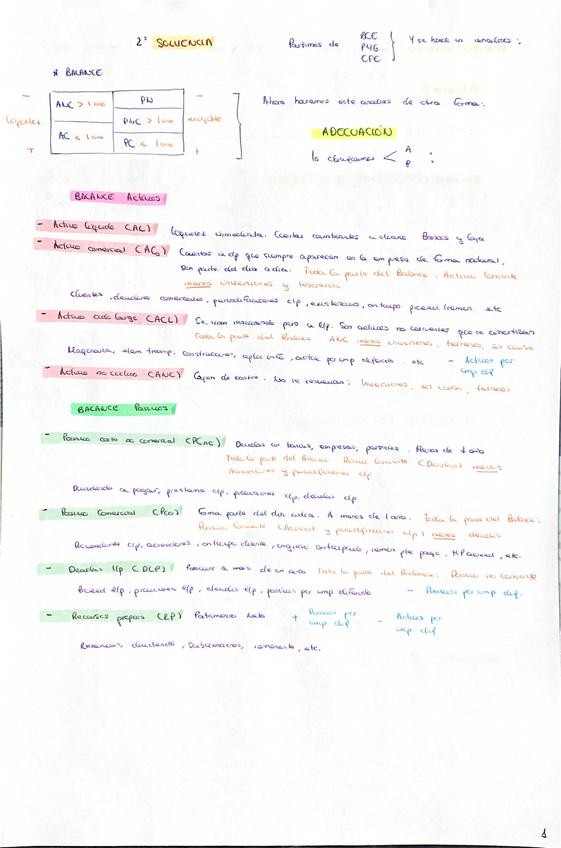 2º SOLVENCIA
Partimos de BCE
PyG
CFE
Y se hace un análisis:
* BALANCE
ANC > 1 año
PN
Ahora haremos este análisis de otra forma:
liquidez
PNC > 1 año
exigible
AC ≤ 1 año
PC ≤ 1 año
ADECUACIÓN
lo clasificamos < A
P :
BALANCE Activos
- Activo líquido (AL) liquidez inmediata. Bancos y Caja
- Activo comercial (ACo) Cuentas a c/p que siempre aparecen en la empresa de forma natural,
son parte del día a día. Toda la parte del Balance: Activo Corriente
menos inversiones y tesorería
clientes, deudores comerciales, periodificaciones c/p, existencias, anticipo etc
- Activo ciclo largo (ACL) Se van a l/p. Son activos no corrientes que se
Toda la parte del Balance ANC menos inversiones, terrenos, en curso
Maquinaria, elem transp. construcciones, aplic info, activo por imp diferido . etc - Activos por
imp dif
- Activo no cíclico (ANC) No se renuevan: Inversiones, en curso, terrenos
BALANCE Pasivos
- Pasivo corto no comercial (PCnc) Deudas con bancos, empresas, Menos de 1 año
Toda la parte del Balance Pasivo Corriente (Deudas) menos
Acreedores y periodificaciones c/p
Dividendo a pagar, préstamo c/p, provisiones c/p, deudas c/p
- Pasivo Comercial (PCo) Forma parte del día a día. A menos de 1 año. Toda la parte del Balance:
Pasivo Corriente (Acreed y periodificaciones c/p) menos deudas
Proveedores c/p, acreedores, anticipo cliente, ingreso anticipado, remun pte pago, HP acreed, etc.
- Deudas l/p (DLP) a más de un año Toda la parte del Balance: Pasivo no corriente
Acreed l/p, provisiones l/p, deudas l/p, pasivos por imp diferido - Pasivos por imp dif.
- Recursos propios (RP) Patrimonio Neto + Pasivos por
imp dif
- Activos por
imp dif
Reservas, dividendo, Subvenciones, remanente, etc.
1